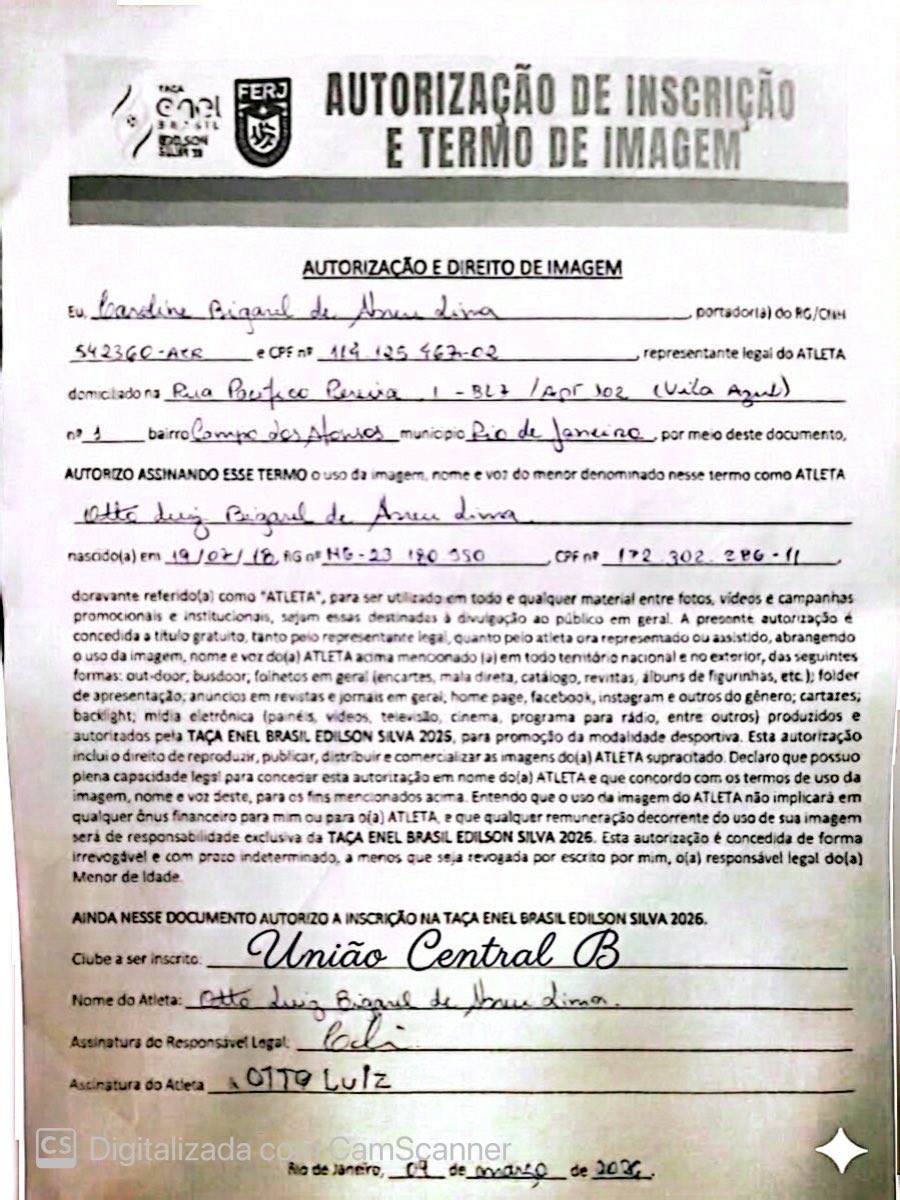 TAÇA
enel
BRASIL
EDILSON
SILVA
FERJ
AUTORIZAÇÃO DE INSCRIÇÃO
E TERMO DE IMAGEM
AUTORIZAÇÃO E DIREITO DE IMAGEM
Eu, Caroline Bigarel de Abreu Lima, portador(a) do RG/CNH
542360-AER e CPF nº 114.125.467-02, representante legal do ATLETA
domiciliado na Rua Pacífico Pereira, 1 - BL7 /Apt 102 (Vila Azul)
nº 1 bairro Campo dos Afonsos município Rio de Janeiro, por meio deste documento,
AUTORIZO ASSINANDO ESSE TERMO o uso da imagem, nome e voz do menor denominado nesse termo como ATLETA
Otto Luiz Bigarel de Abreu Lima
nascido(a) em 19/07/18, RG nº MG-23 180 950, CPF nº 172.302.286-11,
doravante referido(a) como "ATLETA", para ser utilizado em todo e qualquer material entre fotos, vídeos e campanhas
promocionais e institucionais, sejam essas destinadas à divulgação ao público em geral. A presente autorização é
concedida a título gratuito, tanto pelo representante legal, quanto pelo atleta ora representado ou assistido, abrangendo
o uso da imagem, nome e voz do(a) ATLETA acima mencionado (a) em todo território nacional e no exterior, das seguintes
formas: out-door, busdoor, folhetos em geral (encartes, mala direta, catálogo, revistas, álbuns de figurinhas, etc.); folder
de apresentação; anúncios em revistas e jornais em geral, home page, facebook, instagram e outros do gênero; cartazes;
backlight; mídia eletrônica (painéis, vídeos, televisão, cinema, programa para rádio, entre outros) produzidos e
autorizados pela TAÇA ENEL BRASIL EDILSON SILVA 2026, para promoção da modalidade desportiva. Esta autorização
inclui o direito de reproduzir, publicar, distribuir e comercializar as imagens do(a) ATLETA supracitado. Declaro que possuo
plena capacidade legal para conceder esta autorização em nome do(a) ATLETA e que concordo com os termos de uso da
imagem, nome e voz deste, para os fins mencionados acima. Entendo que o uso da imagem do ATLETA não implicará em
qualquer ônus financeiro para mim ou para o(a) ATLETA, e que qualquer remuneração decorrente do uso de sua imagem
será de responsabilidade exclusiva da TAÇA ENEL BRASIL EDILSON SILVA 2026. Esta autorização é concedida de forma
irrevogável e com prazo indeterminado, a menos que seja revogada por escrito por mim, o(a) responsável legal do(a)
Menor de Idade.
AINDA NESSE DOCUMENTO AUTORIZO A INSCRIÇÃO NA TAÇA ENEL BRASIL EDILSON SILVA 2026.
Clube a ser inscrito: União Central B
Nome do Atleta: Otto Luiz Bigarel de Abreu Lima.
Assinatura do Responsável Legal:
Assinatura do Atleta OTTO LUIZ
CS Digitalizada com CamScanner
Rio de Janeiro, 09 de março de 2026.